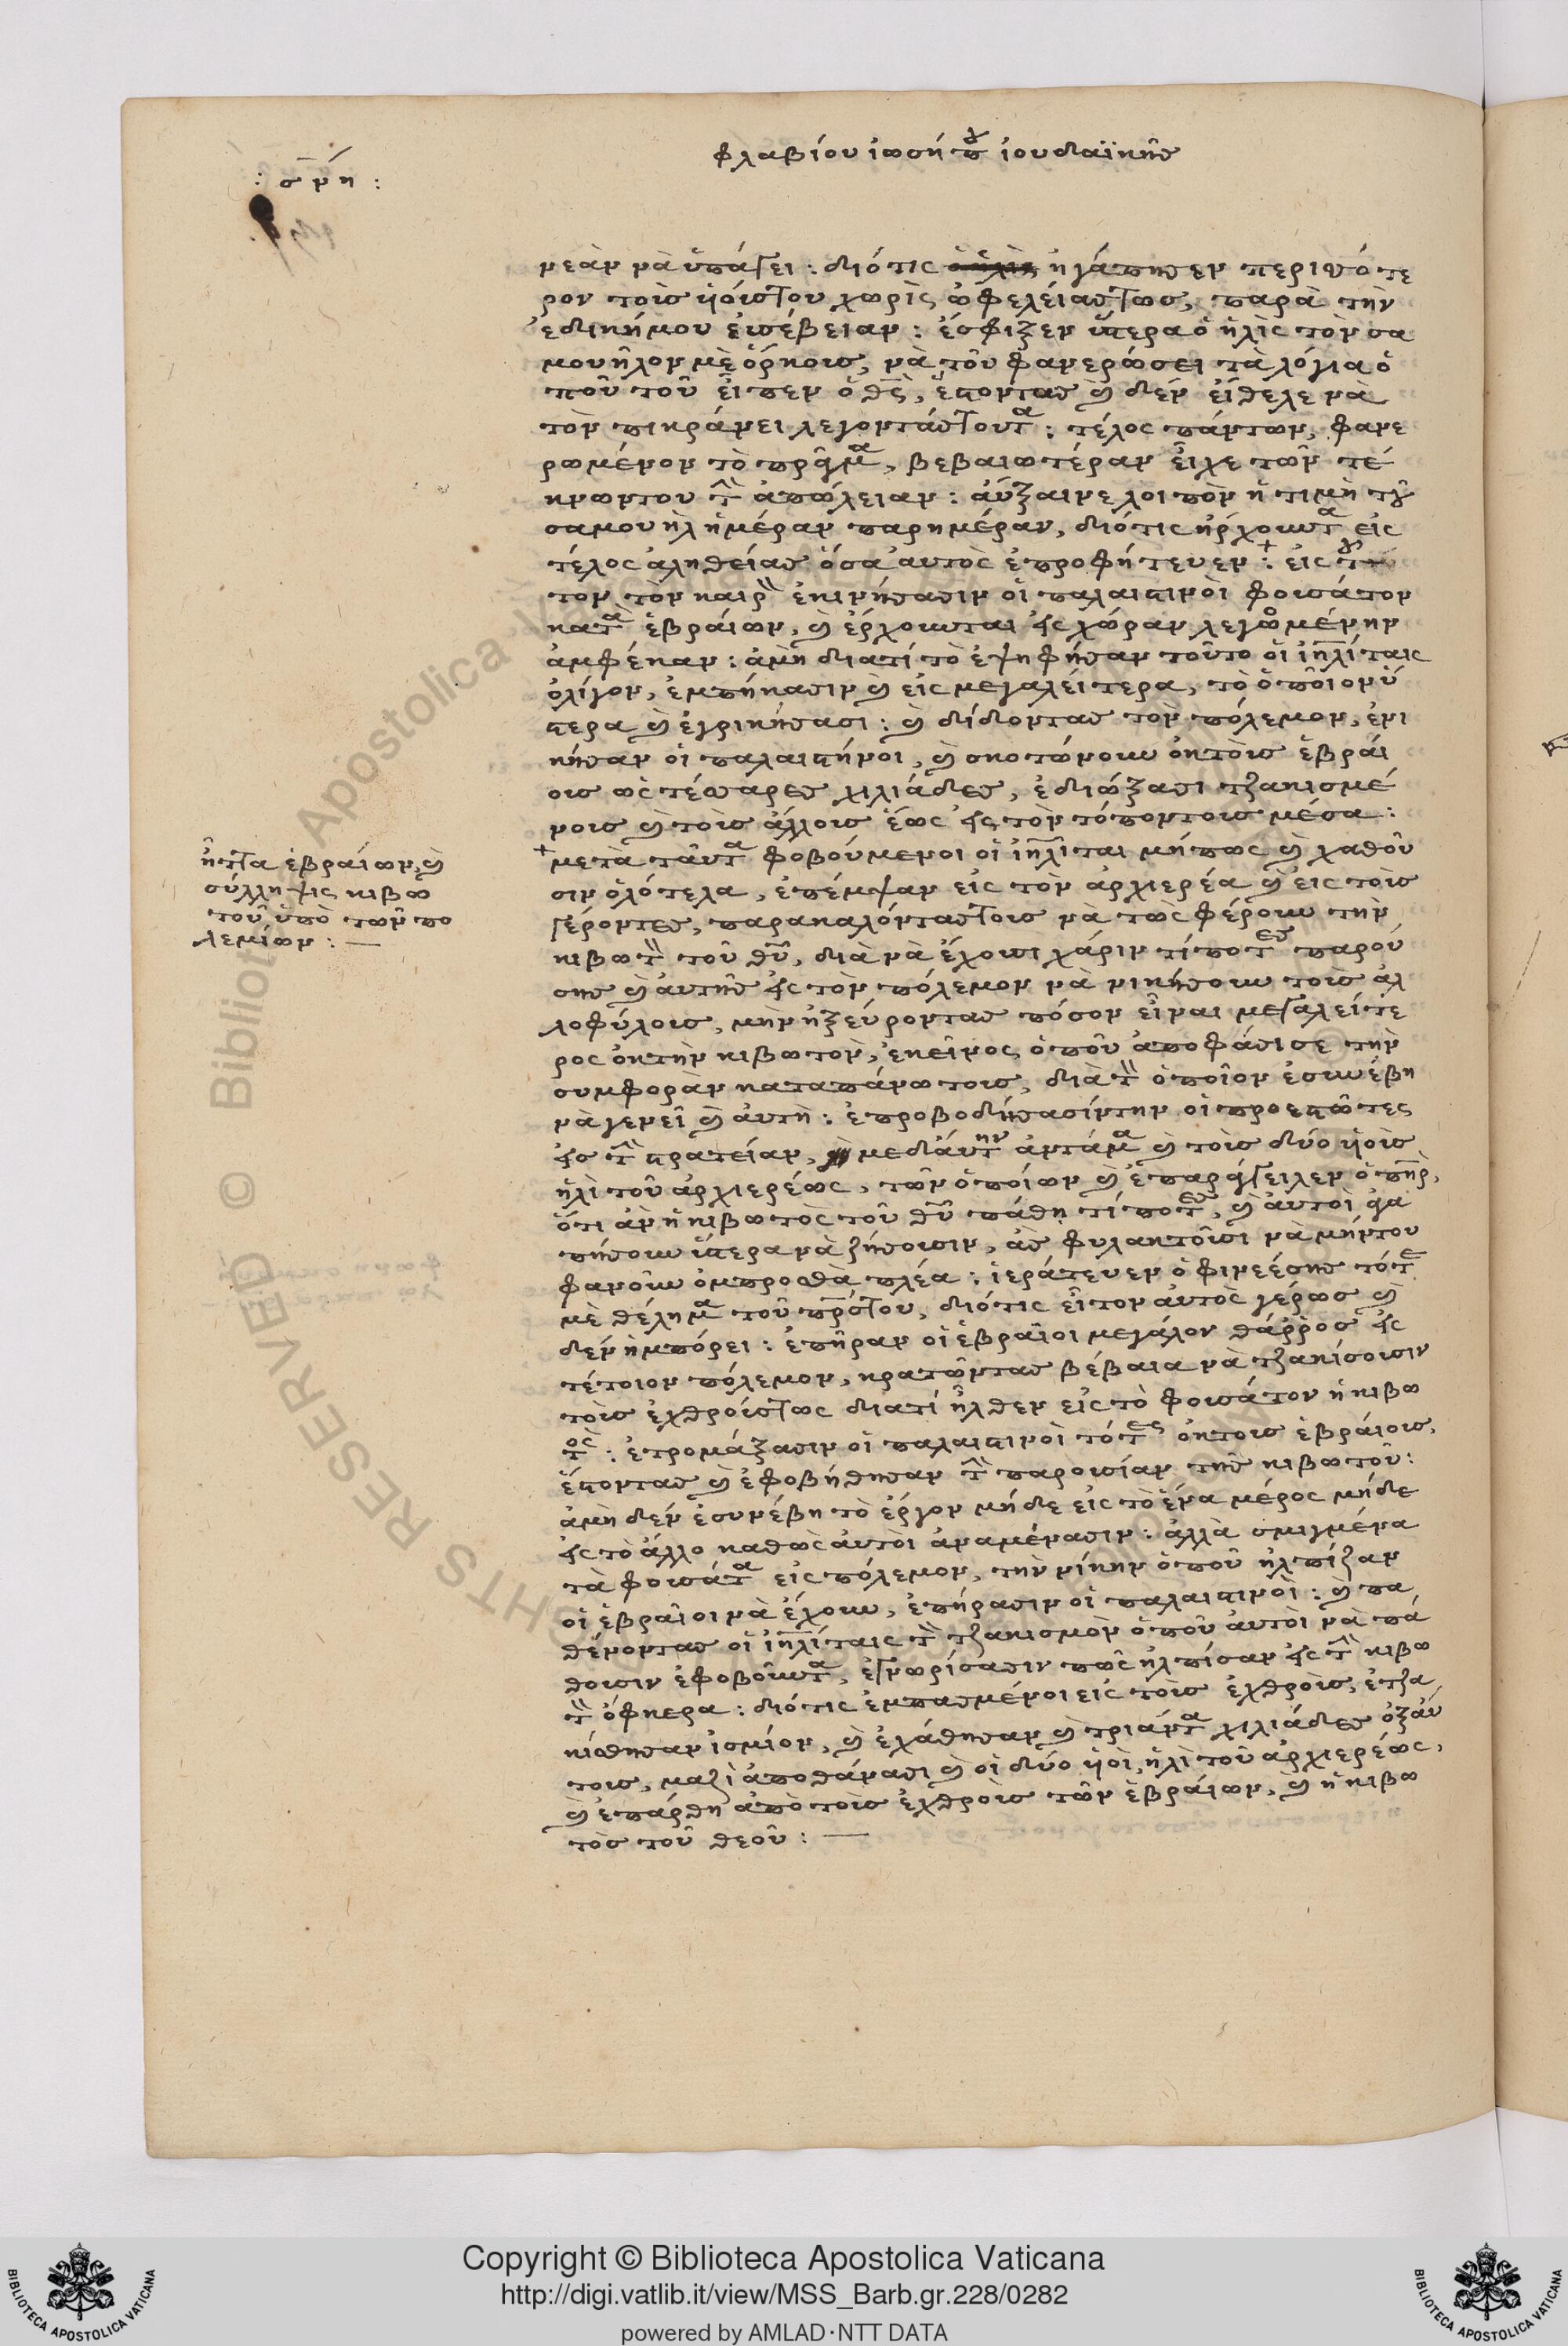 φλαβίου ἰωσήπου ἰουδαϊκῆς
: σνή :
νεὰν νὰ ὑπάγει : διότις ἠγάπησεν περισσότε
ρον τοὶς ὑόις του χωρὶς ὠφελείας τως, παρὰ τὴν
ἐδικήμου ἐυσέβειαν : ἐσφιξεν ὕστερα ὁ ἡλὶς τὸν σα
μουῆλον μὲ ὅρκοις, νὰ τοῦ φανερώσει τὰ λόγια ὁ
ποῦ τοῦ εἶπεν ὁ θς, ἔστοντας καὶ δὲν εἴθελε νὰ
τὸν πικράνει λεγοντάς του τα : τέλος πάντων, φανε
ρωμένον τὸ πρᾶγμα, βεβαιωτέραν εἶχε τῶν τέ
κνων του τὴν ἀπώλειαν : ἀύξαινε λοιπὸν ἡ τιμὴ τοῦ
σαμουὴλ ἡμέραν παρημέραν, διότις ἠρχουντα εἰς
τέλος ἀληθείας ὅσα ἀυτὸς ἐπροφήτευεν + : εἰς τοῦ
τον τὸν καιρὸν ἐκινήσασιν οἱ παλαιστινοὶ φουσάτον
κατὰ ἑβραίων, καὶ ἐρχουνται εἰς χώραν λεγομένην
ἀμφέκαν : ἀμὴ διατί τὸ ἐψηφήσαν τοῦτο οἱ ἰηλίταις
ὀλίγον, ἐμπήκασιν καὶ εἰς μεγαλείτερα, τὸ ὁποῖον ὕ
στερα καὶ ἐγρικήσασι : καὶ δίδοντας τὸν πόλεμον, ἐνι
κήσαν οἱ παλαιστήνοι, καὶ σκοτώνουν ὀκ τοὶς ἑβράι
οις ὡς τέσσαρες χιλιάδες, ἐδιώξασι τζακισμέ
νοις καὶ τοὶς ἄλλοις ἕως εἰς τὸν τόπον τοις μέσα :
+ μετὰ ταῦτα φοβούμενοι οἱ ἰηλῖται μήπως καὶ χαθοῦ
σιν ὁλότελα, ἐπέμψαν εἰς τὸν ἀρχιερέα καὶ εἰς τοὶς
γέροντες, παρακαλόντας τοις νὰ τὼς φέρουν τὴν
κιβωτὸν τοῦ θῦ, διὰ νὰ ἔχουσι χάριν τίποτες παρού
σης καὶ ἀυτῆς εἰς τὸν πόλεμον νὰ νικήσουν τοὶς ἀλ
λοφύλοις, μὴν ἠξεύροντας πόσον εἶναι μεγαλείτε
ρος ὀκ τὴν κιβωτὸν, ἐκεῖνος ὁποῦ ἀποφάσισε τὴν
συμφορὰν καταπάνω τοις, διὰ τὸ ὁποῖον ἐσυνέβη
νὰ γενεῖ καὶ ἀυτὴ : ἐπροβοδήσασίντην οἱ προεστῶτες
εἰς τὴν στρατείαν, μὲ δάυτην ἀντάμα καὶ τοὶς δύο ὑοὶς
ἡλὶ τοῦ ἀρχιερέως, τῶν ὁποίων καὶ ἐπαράγγειλεν ὁ πῆρ,
ὅτι ἂν ἡ κιβωτὸς τοῦ θῦ πάθη τίποτες, καὶ ἀυτοὶ ἀγα
πήσουν ὕστερα νὰ ζήσουσιν, ἂς φυλακτοῦσι νὰ μὴν του
φανοῦν ὀμπροσθὰ πλέα : ἱεράτευεν ὁ φινεέσης τότε
μὲ θέλημα τοῦ πρς του, διότις εἶτον ἀυτὸς γέρως καὶ
δὲν ἠμπόρει : ἐπῆραν οἱ ἑβραῖοι μεγάλον θάρρος εἰς
τέτοιον πόλεμον, κρατῶντας βέβαια νὰ τζακίσουσιν
τοὶς ἐχθρόις τως διατί ἦλθεν εἰς τὸ φουσάτον ἡ κιβω
τος : ἐτρομάξασιν οἱ παλαιστινοὶ τότες ὀκ τοὶς ἑβράιοις,
ἔστοντας καὶ ἐφοβήθησαν τὴν παρουσίαν τῆς κιβωτοῦ :
ἀμὴ δὲν ἐσυνέβη τὸ ἔργον μήδε εἰς τὸ ἕνα μέρος μήδε
εἰς τὸ ἄλλο καθὼς ἀυτοὶ ἀναμένασιν : ἀλλὰ σμιγμένα
τὰ φουσάτα εἰς πόλεμον, τὴν νίκην ὁποῦ ἠλπίζαν
οἱ ἑβραῖοι νὰ ἔχουν, ἐπήρασιν οἱ παλαιστινοὶ : καὶ πα
θένοντας οἱ ἰηλίταις τὸν τζακισμὸν ὁποῦ ἀυτοὶ νὰ πά
θουσιν ἐφοβοῦντα, ἐγνωρίσασιν πῶς ἠλπίσαν εἰς τὴν κιβω
τὸν ὄφκερα : διότις ἐμπασμένοι εἰς τοὶς ἐχθροὶς, ἐτζα
κίσθησαν ἰσμίον, καὶ ἐχάθησαν καὶ τριάντα χιλιάδες ὀξάυ
τοις, μαζὶ ἀποθάνασι καὶ οἱ δύο ὑοὶ, ἡλὶ τοῦ ἀρχιερέως,
καὶ ἐπάρθη ἀπὸ τοὶς ἐχθροὶς τῶν ἑβραίων, καὶ ἡ κιβω
τὸς τοῦ θεοῦ : —
ἧττα ἑβραίων, καὶ
σύλληψις κιβω
τοῦ ὑπὸ τῶν πο
λεμίων : —
Copyright © Biblioteca Apostolica Vaticana
http://digi.vatlib.it/view/MSS_Barb.gr.228/0282
powered by AMLAD·NTT DATA
BIBLIOTECA APOSTOLICA VATICANA
BIBLIOTECA APOSTOLICA VATICANA